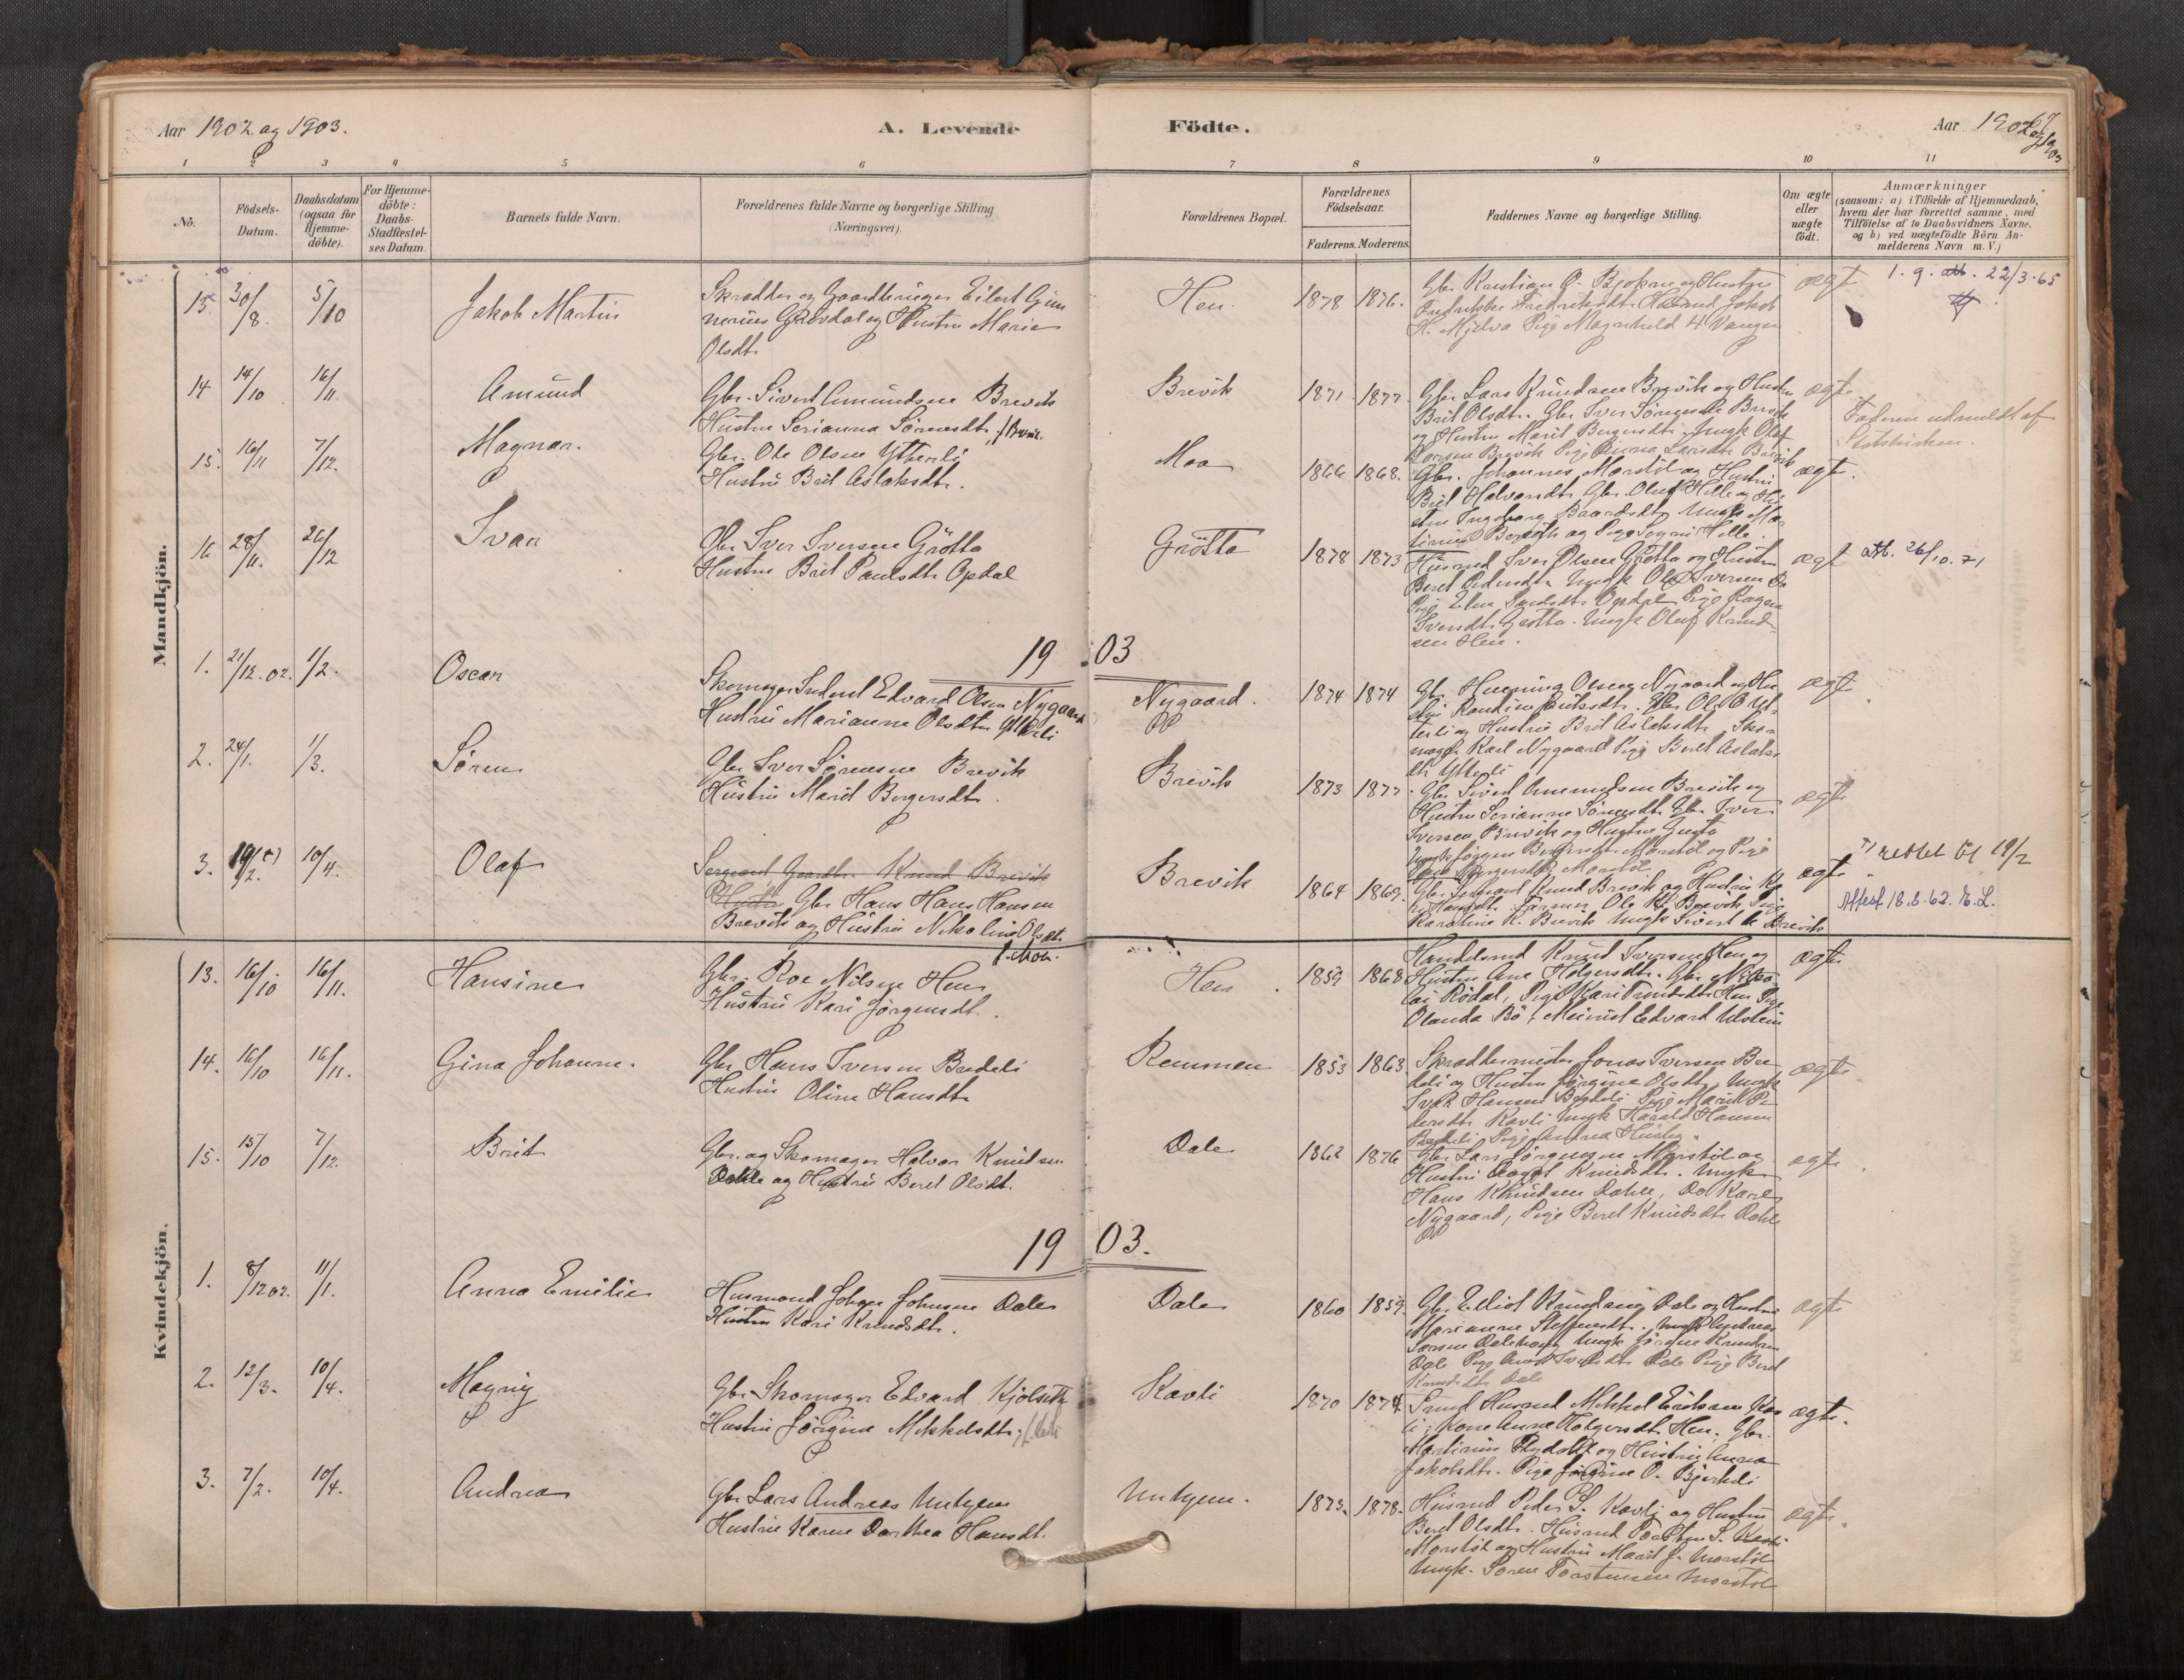 Aar 1902 og 1903.
A. Levende
Födte.
Aar 1902 og 1903
67
1 2 3 4 5 6 7 8 9 10 11
No.
Födsels-Datum.
Daabsdatum (ogsaa for Hjemme-döbte).
For Hjemme-döbte: Daabs-Stadfæstel-ses Datum.
Barnets fulde Navn.
Forældrenes fulde Navne og borgerlige Stilling (Næringsvei).
Forældrenes Bopæl.
Forældrenes Födselsaar.
Faderens. Moderens.
Faddernes Navne og borgerlige Stilling.
Om ægte eller uægte födt.
Anmærkninger
(saasom: a) i Tilfælde af Hjemmedaab,
hvem der har forrettet samme, med
Tilföielse af to Daabsvidners Navne,
og b) ved uægtefödte Börn An-
melderens Navn m. V.)
Mandkjön.
13. 30/8. 5/10 Jakob Martin
Skrædder og Gaardbruger Eilert Gun
nerius Grovdal og Hustru Marie
Olsdt.
Hen. 1878 1876.
Gbr. Kristian Bjokne og Hustru
Fredrikke Fredriksdt. Husmd Jakob
H. Mjelva Pige Magnhild H Vangen
ægt
1. g. att. 22/3-65
14 14/10 16/11 Amund
Gbr. Sivert Amundsen Brevik
Hustru Serianna Sörensdt. f. Brevik.
Brevik 1871 1877.
Gbr Lars Knudsen Brevik og Hustru
Brit Olsdt. Gbr Iver Sörensen Brevik
og Hustru Marit Bergersdt. Ungk Olaf
Larsen Brevik Pige Anna Larsdt. Brevik
ægt.
Faderen udmeldt af
Statskirken.
15. 16/11 7/12. Magnar.
Gbr. Ole Olsen Ytterli
Hustru Brit Aslaksdt.
Moa 1866 1868.
Gbr. Johannes Morstöl og Hustru
Brit Halvorsdt. Gbr. Oluf Helle og Hu
stru Ingeborg Baardsdt. Ungk Mar
tinus og Pige Helle.
ægte.
16. 28/11. 26/12 Ivar
Gbr. Iver Iversen Grötta
Hustru Brit Paulsdt. Opdal
Grötta 1878 1873
Husmd Iver Olsen Grötta og Hustru
Beret Pedersdt. Ungk Ole Iversen Do
Pige Elen Opdal Pige Ragna
Iversdt. Grötta. Ungk Oluf Knud-
sen Hen.
ægt
att. 26/10.71
19 03
1. 21/12.02. 1/2. Oscar
Skomager Inderst Edvard Olsen Nygaard
Hustru Marianne Olsdtr Ytterli
Nygaard. 1874 1874
Gbr. Henning Olsen Nygaard og Hu
stru Randine Eriksdt. Gbr Ole O Yt-
terli og Hustru Brit Aslaksdt. Sko-
mager Karl Nygaard Pige Beret Aslaks
dt. Ytterli
ægt
2. 24/1. 1/3. Sören
Gbr Iver Sörensen Brevik
Hustru Marit Bergersdt.
Brevik 1873 1877
Gbr Sivert Amundsen Brevik og
Hustru Serianna Sörensdt. Gbr Iver
Iversen Brevik og Hustru Gusta
Ungk Jörgen Morstöl og Pige
Bergersdt. Morstöl
ægte
3. 19/2. *) 10/4. Olaf
Sergeant Gaardbr. Knud Brevik
og Hustru Gbr Hans Hans Hansen
Brevik og Hustru Nikoline Olsdt.
f. Moe.
Brevik 1864 1869.
Gbr. Sergeant Knud Brevik og Hustru
Hansdt. Farmer Ole K Brevik Pige
Karoline K. Brevik Ungk Sivert K Brevik
ægte
*) rettet til 19/2
Attest 18.8.62. E.L.
Kvindekjön.
13. 16/10 16/11. Hansine
Gbr. Roe Nilsen Hen
Hustru Kari Jörgensdt.
Hen 1859 1868
Handelsmd Knud Iversen Hen og
Hustru Ane Holgersdt. Gbr Nikolai
Rödal, Pige Kari Hen Pige
Olanda Bö, Edvard Ulstein
ægte
14. 16/10 16/11. Gina Johanne.
Gbr Hans Iversen Bredeli
Hustru Oline Hansdt.
Remmen 1853 1863.
Skræddermester Jonas Iversen Bre
deli og Hustru Jörgine Olsdt. Ungk
Ivar Hansen Bredeli Pige Marit Pe-
dersdt. Kavli Ungk Harald Hansen
Bredeli Pige Andrea
ægte
15. 15/10 7/12. Brit
Gbr. og Skomager Halvor Knudsen
Dahle og Hustru Beret Olsdt.
Dale 1862 1876
Gbr Lars Jörgensen Morstöl og
Hustru Knudsdt. Ungk
Hans Knudsen Dahle, Do Karl
Nygaard, Pige Beret Knudsdt. Dahle
ægte
19 03.
1. 8/12 02. 11/1. Anna Emilie
Husmand Johan Johnsen Dale
Hustru Kari Knudsdt.
Dale 1860 1859.
Gbr. Elliot Knudsen Dale og Hustru
Marianne Steffensdt. Ungk Andreas
Larsen Ungk Jörgen Knudsen
Dale Pige Dale Pige Beret
Knudsdt. Dale
ægte
2. 12/3. 10/4. Magny
Gbr. Skomager Edvard Kjölseth
Hustru Jörgine Mikkelsdt.
Kavli 1870 1874.
Husmd Mikkel Eriksen Kav
li, Kone Anne Holgersdt. Hen, Gbr.
Martinus og Hustru Anna
Jakobsdt. Pige Jörgine O. Bjerkeli
ægte.
3. 7/2. 10/4. Andrea
Gbr Lars Andreas Unhjem
Hustru Karen Dorthea Hansdt.
Unhjem. 1873. 1878.
Husmd Peder S. Kavli og Hustru
Beret Olsdt. Husmd Torsten S.
Morstöl og Hustru Marit J. Morstöl
Ungk. Sören Torstensen Morstöl
ægte.